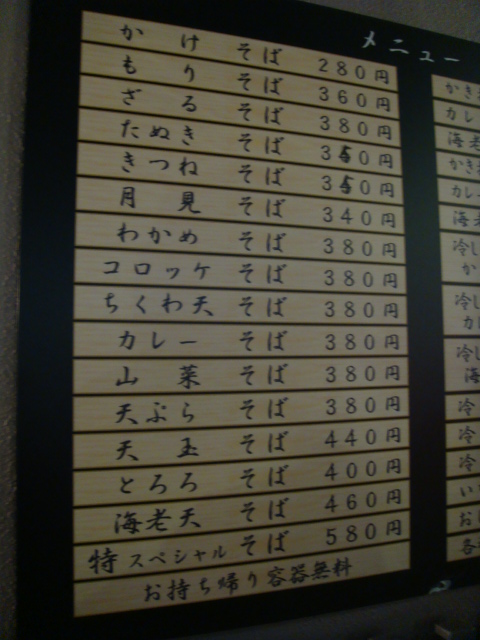 メニュー
かけそば 280円
もりそば 360円
ざるそば 380円
たぬきそば 350円
きつねそば 350円
月見そば 340円
わかめそば 380円
コロッケそば 380円
ちくわ天そば 380円
カレーそば 380円
山菜そば 380円
天ぷらそば 380円
天玉そば 440円
とろろそば 400円
海老天そば 460円
特スペシャルそば 580円
お持ち帰り容器無料
かき
カレ
海老
かき
カレー
海老
冷し
か
冷し
カ
冷し
海
冷
冷
冷
い
お
各